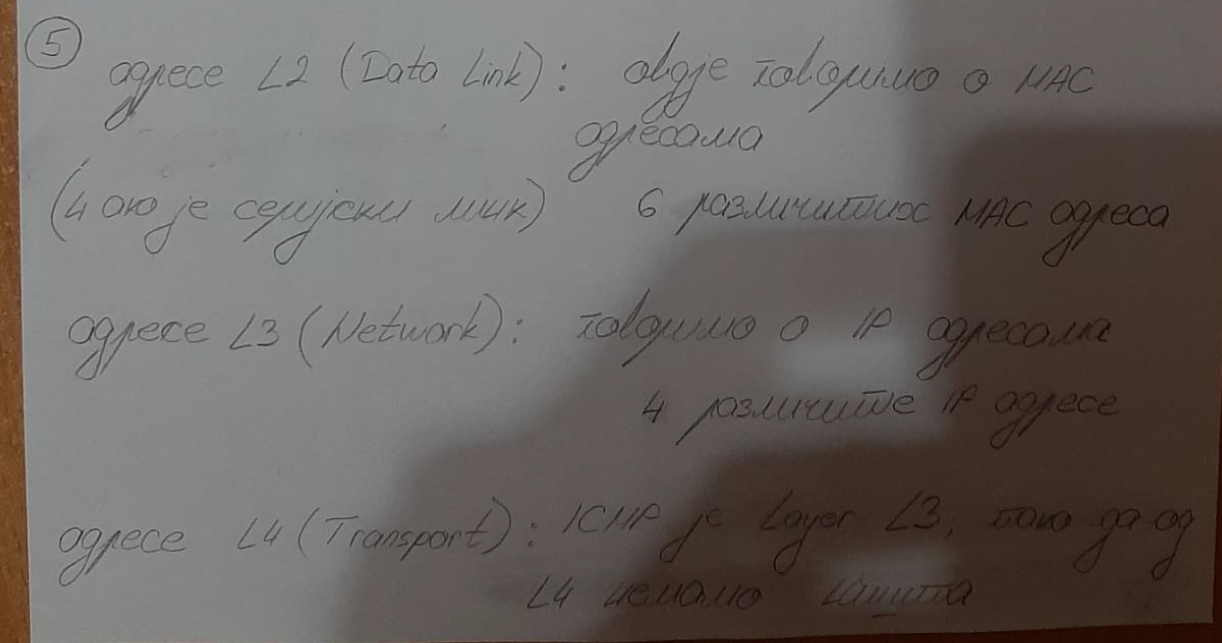 5
адресе L2 (Data Link): овдје говоримо о MAC
адресама
(4 ако је серијски линк) 6 различитих MAC адреса
адресе L3 (Network): говоримо о IP адресама
4 различите IP адресе
адресе L4 (Transport): ICMP је Layer L3, тако да од
L4 немамо ништа